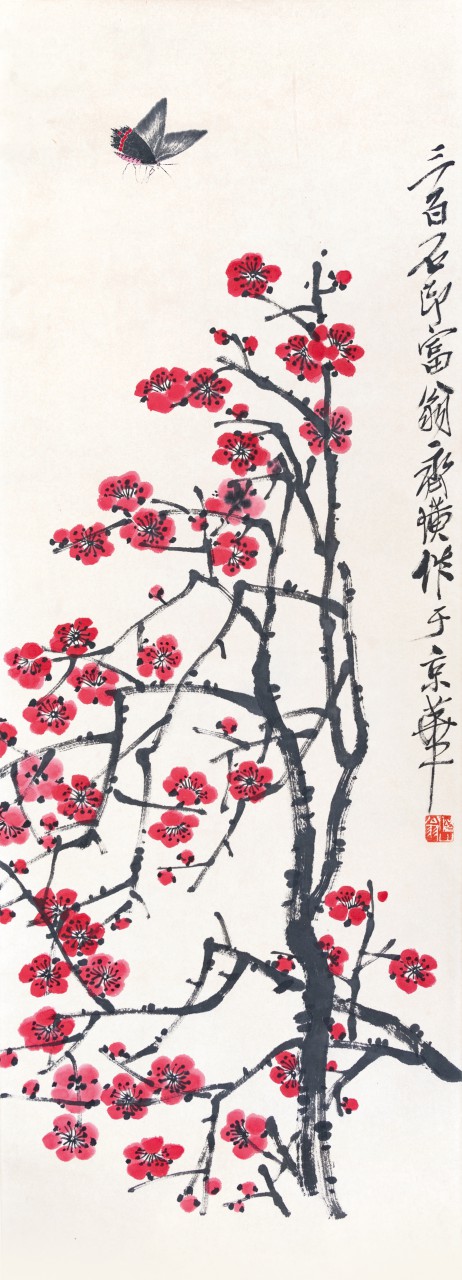 三百石印富翁齊璜作于京華